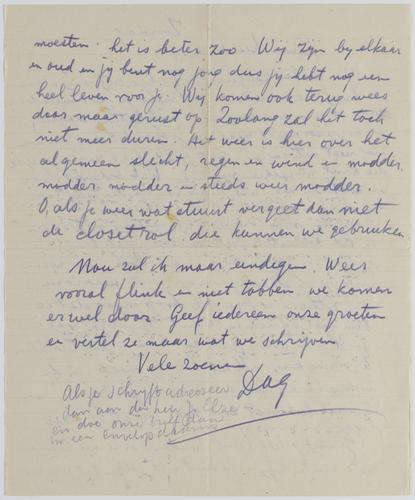 moesten. het is beter zoo. Wij zijn bij elkaar
en oud en jij bent nog jong dus jij hebt nog een
heel leven voor je. Wij komen ook terug wees
daar maar gerust op. Zoolang zal het toch
niet meer duren. Het weer is hier over het
algemeen slecht, regen en wind en modder,
modder, modder en steeds weer modder.
O, als je weer wat stuurt vergeet dan niet
de closetrol, die kunnen we gebruiken
Nou zal ik maar eindigen. Wees
vooral flink en niet tobben we komen
er wel door. Geef iedereen onze groeten
en vertel ze maar wat we schrijven
Vele zoenen
Dag
Als je schrijft adresseer
dan aan den heer J.
en doe onze brief dan
in een envelop daarin